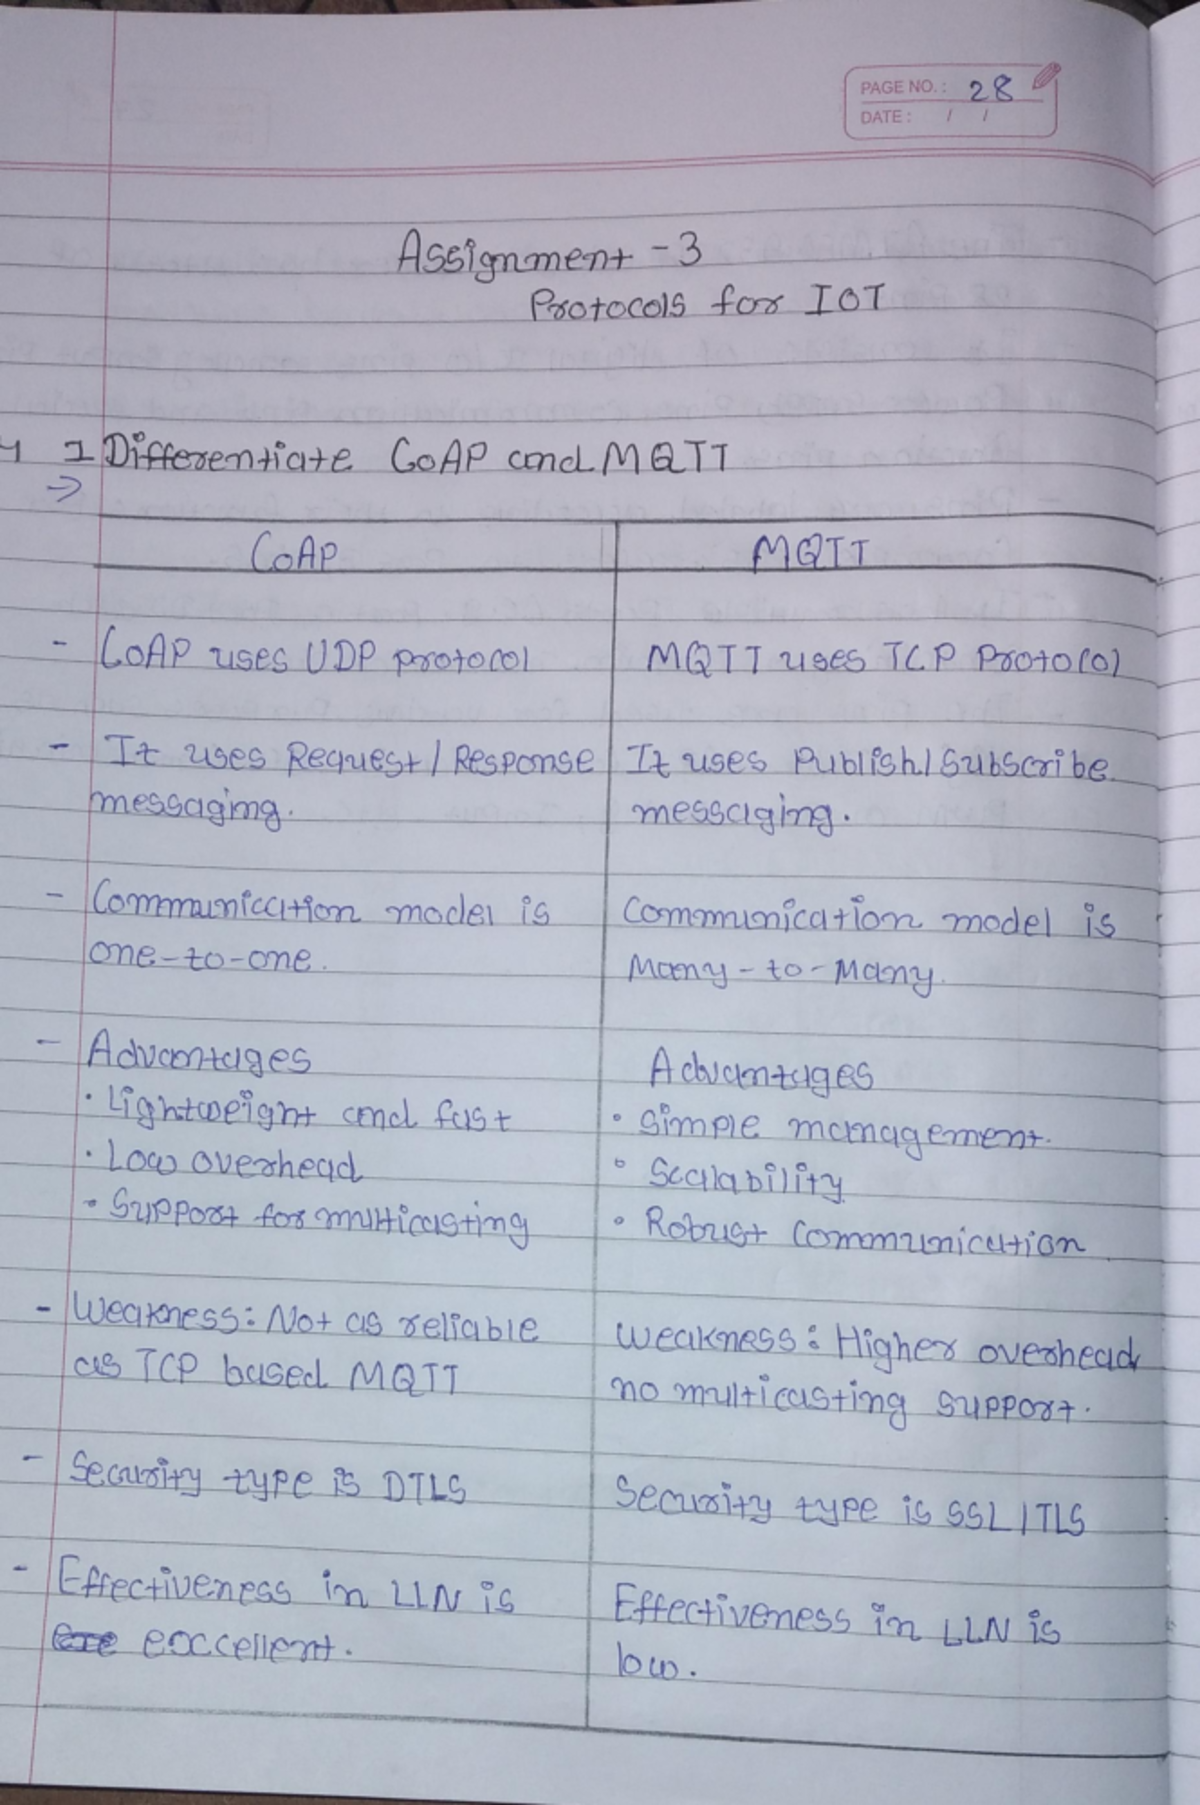 PAGE NO.: 28
DATE: / /
Assignment -3
Protocols for IOT
1 Differentiate CoAP and MQTT
⇒
CoAP
MQTT
- CoAP uses UDP protocol
MQTT uses TCP Protocol
- It uses Request/Response
messaging.
It uses Publish/Subscribe
messaging.
- Communication model is
one-to-one.
Communication model is
Many-to-Many.
- Advantages
• Lightweight and fast
• Low overhead
• Support for multicasting
Advantages
• Simple management.
• Scalability
• Robust Communication
- Weakness: Not as reliable
as TCP based MQTT
Weakness: Higher overhead,
no multicasting support.
- Security type is DTLS
Security type is SSL/TLS
- Effectiveness in LLN is
excellent.
Effectiveness in LLN is
low.